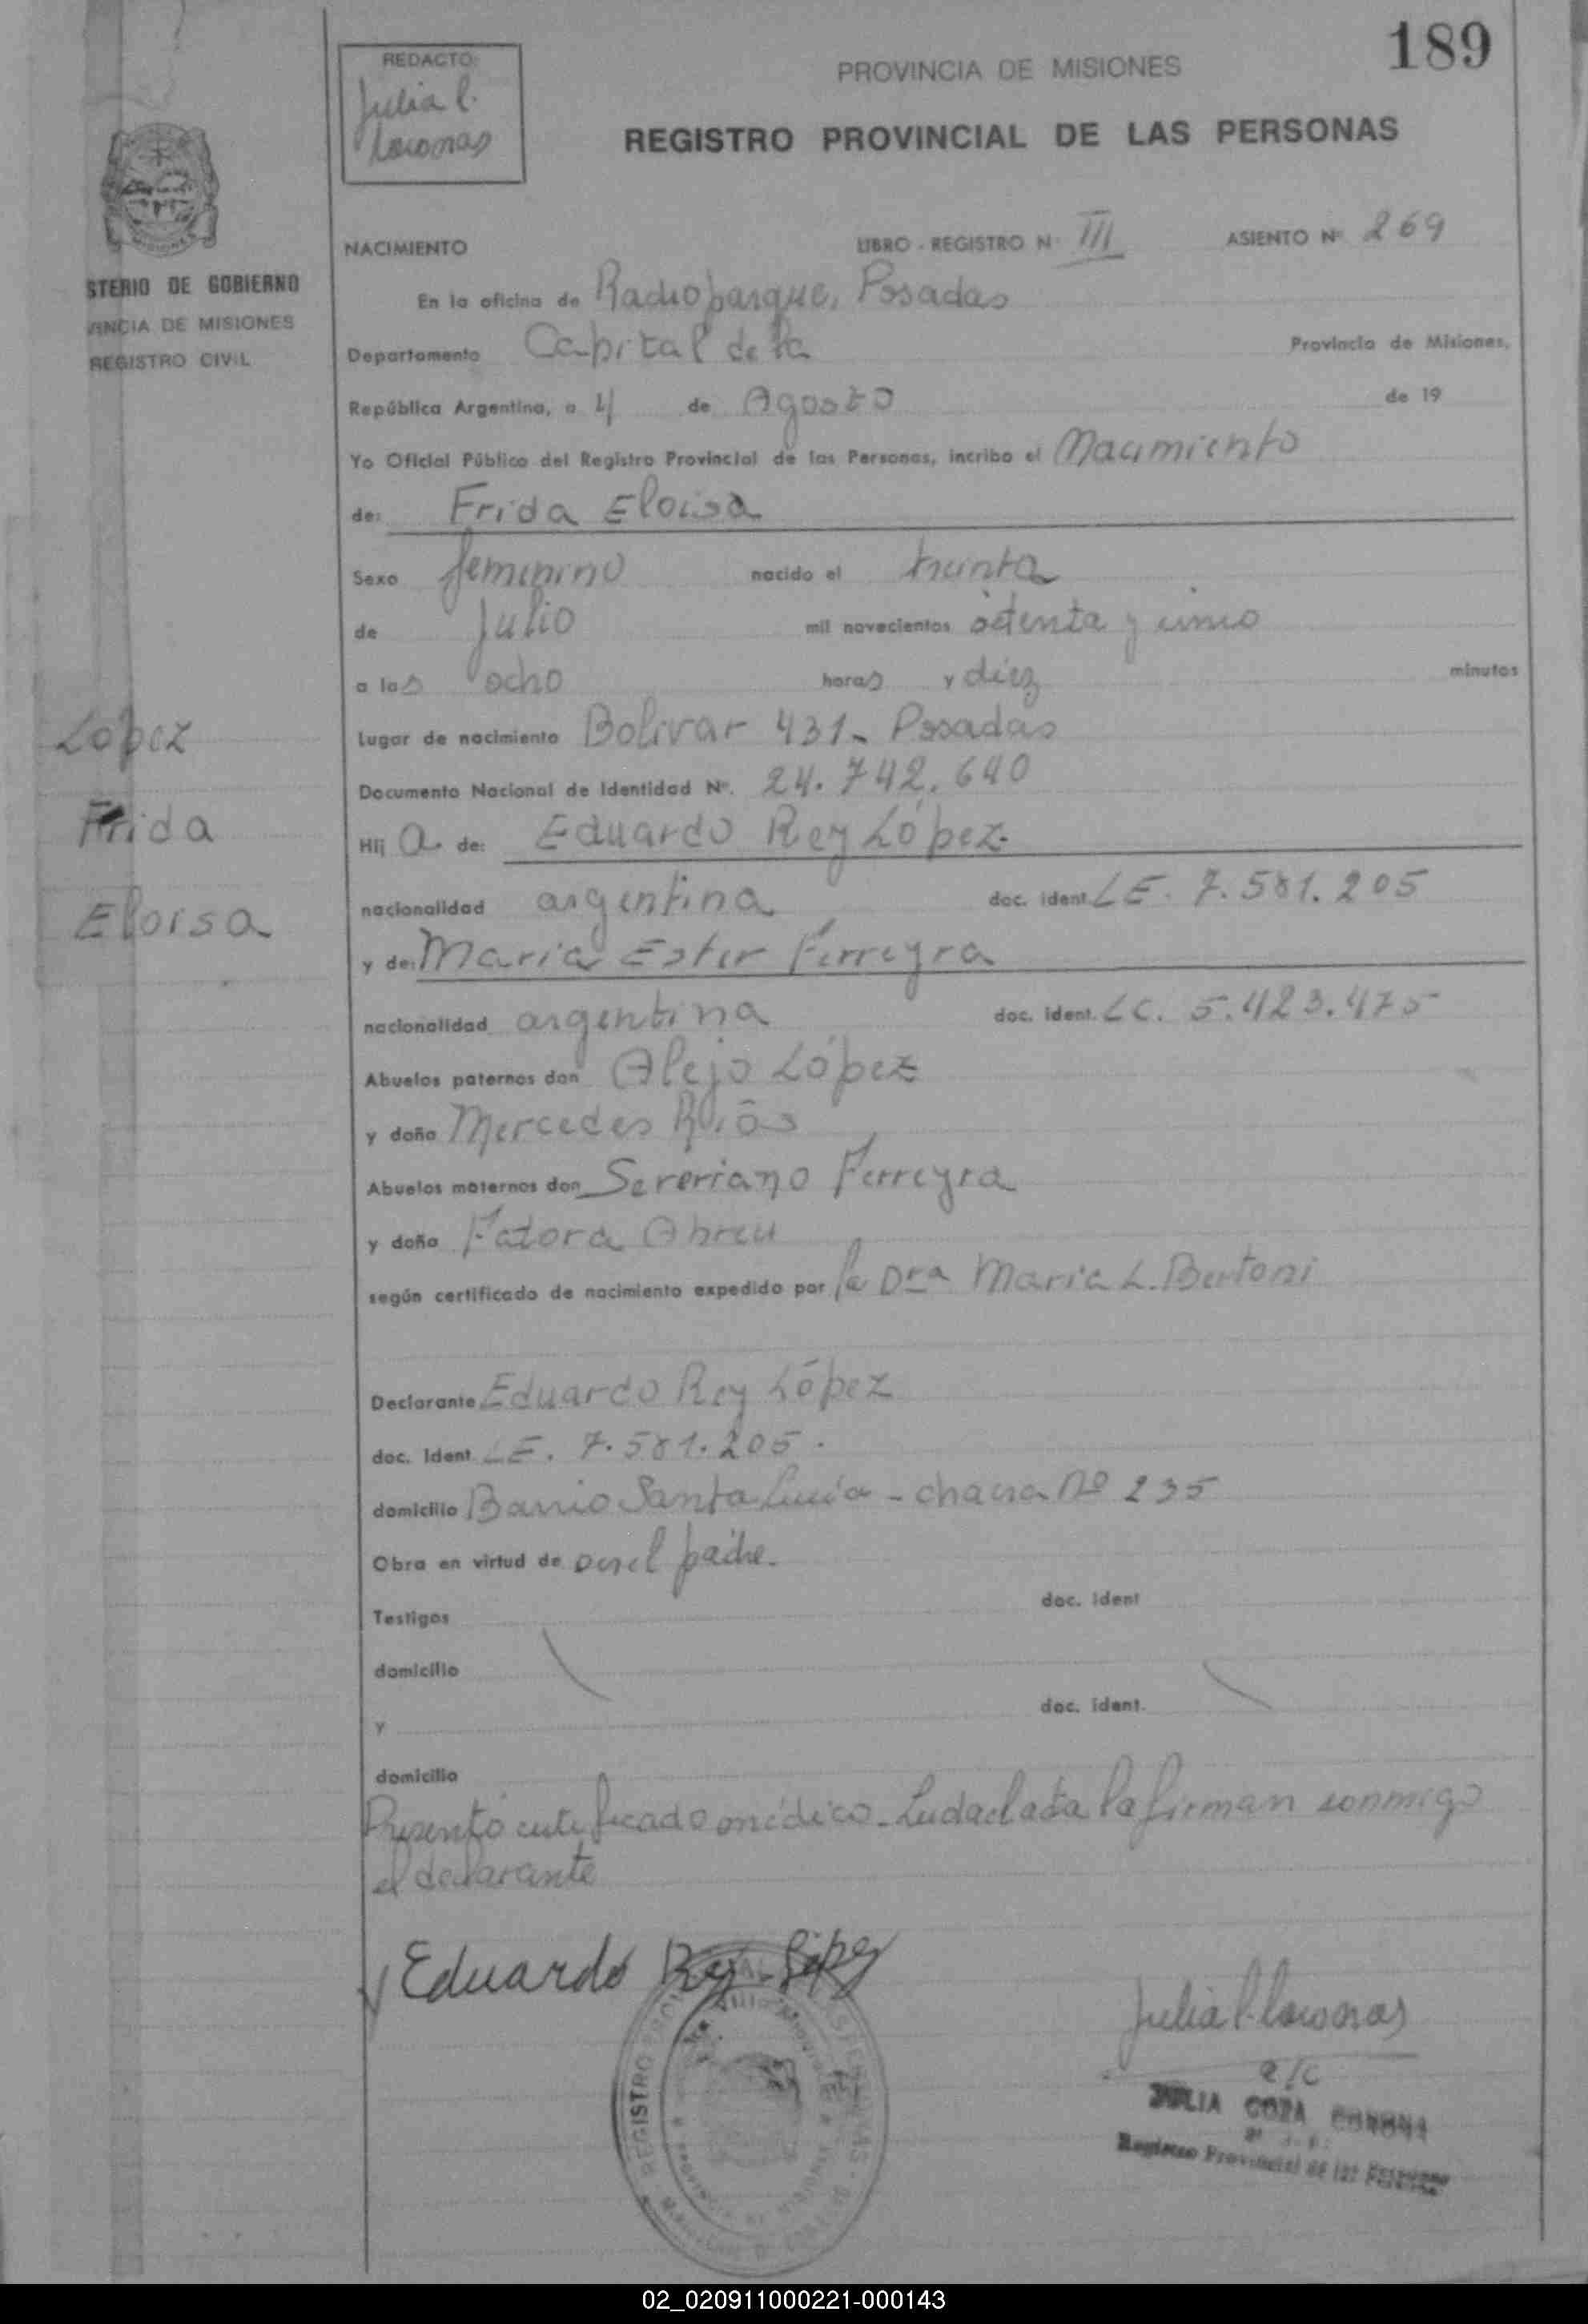 189
REDACTO:
Julia C.
PROVINCIA DE MISIONES
REGISTRO PROVINCIAL DE LAS PERSONAS
NACIMIENTO
LIBRO - REGISTRO N° III
ASIENTO N° 269
STERIO DE GOBIERNO
VINCIA DE MISIONES
REGISTRO CIVIL
En la oficina de Radioparque, Posadas
Departamento Capital de la Provincia de Misiones,
República Argentina, a 4 de Agosto de 19
Yo Oficial Público del Registro Provincial de las Personas, incribo el Nacimiento
de: Frida Eloisa
Sexo femenino nacido el treinta
de Julio mil novecientos setenta y cinco
a las ocho horas y diez minutos
Lugar de nacimiento Bolivar 431- Posadas
Documento Nacional de Identidad N°. 24.742.640
Hij a de: Eduardo Rey López
nacionalidad argentina doc. ident. LE. 7.581.205
y de: Maria Ester Ferreyra
nacionalidad argentina doc. ident. LC. 5.423.475
Abuelos paternos don Alejo López
y doña Mercedes Ríos
Abuelos maternos don Severiano Ferreyra
y doña Abreu
según certificado de nacimiento expedido por la Dra Maria L. Bertoni
Declarante Eduardo Rey López
doc. Ident LE. 7.581.205.
domicilio Barrio Santa Lucía - chacra No 235
Obra en virtud de ser el padre.
Testigos doc. ident
domicilio
y doc. ident.
domicilio
Presentó certificado médico. Leida el acta la firman conmigo
el declarante
Lopez
Frida
Eloisa
Eduardo Rey López
Julia C.
a/c
JULIA
Registro Provincial de las Personas
REGISTRO
02_020911000221-000143